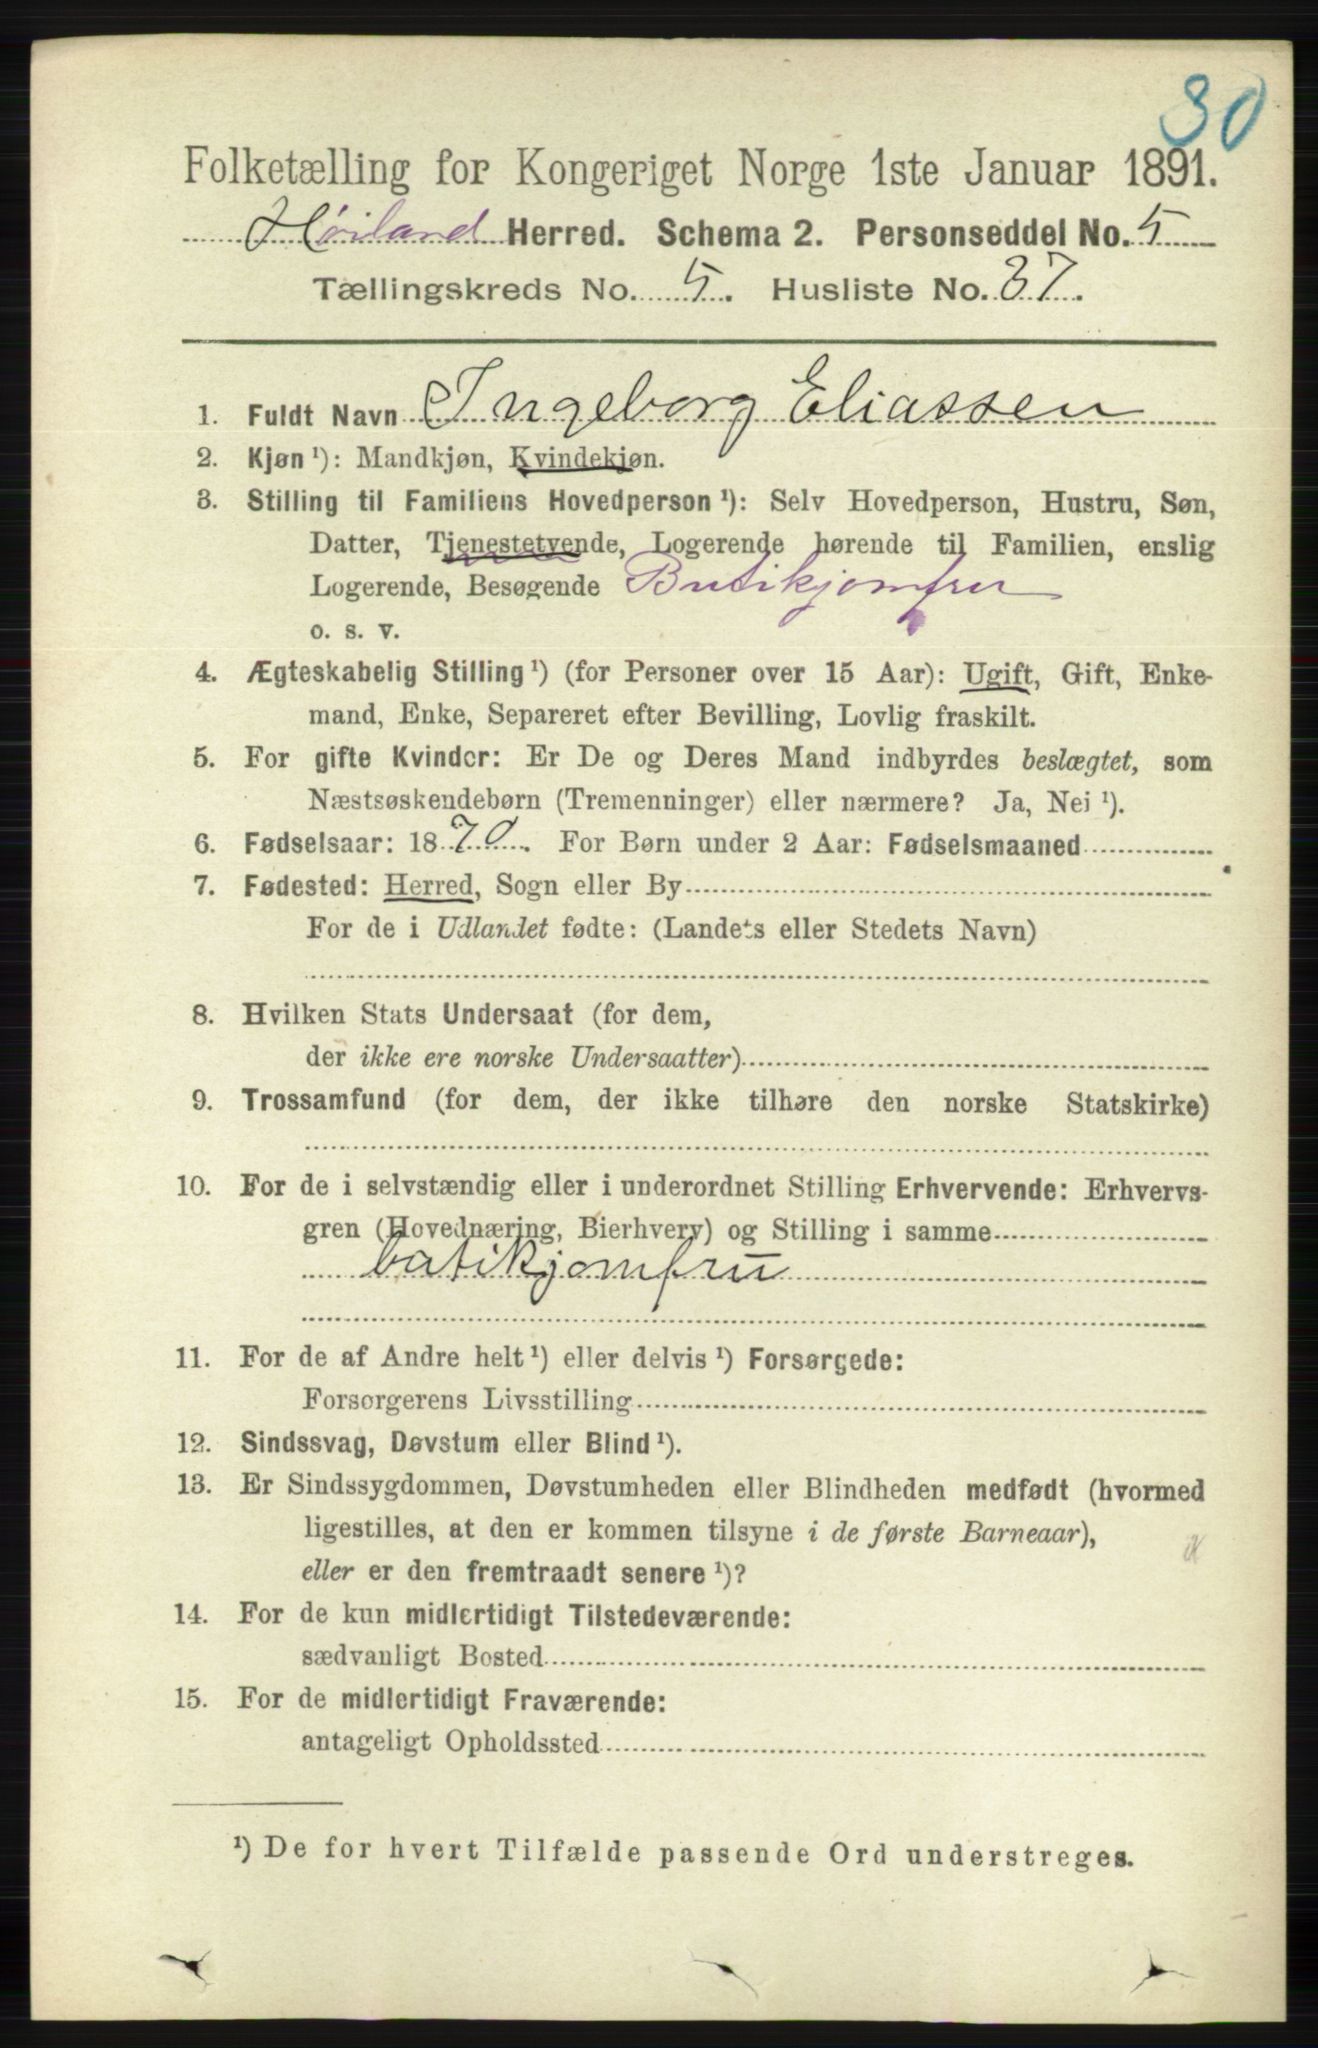 30
Folketælling for Kongeriget Norge 1ste Januar 1891.
Høiland Herred. Schema 2. Personseddel No. 5
Tællingskreds No. 5. Husliste No. 37.
1. Fuldt Navn Ingeborg Eliassen
2. Kjøn ¹): Mandkjøn, Kvindekjøn.
3. Stilling til Familiens Hovedperson ¹): Selv Hovedperson, Hustru, Søn,
Datter, Tjenestetyende, Logerende hørende til Familien, enslig
Logerende, Besøgende Butikjomfru
o. s. v.
4. Ægteskabelig Stilling ¹) (for Personer over 15 Aar): Ugift, Gift, Enke-
mand, Enke, Separeret efter Bevilling, Lovlig fraskilt.
5. For gifte Kvinder: Er De og Deres Mand indbyrdes beslægtet, som
Næstsøskendebørn (Tremenninger) eller nærmere? Ja, Nei ¹).
6. Fødselsaar: 1870. For Børn under 2 Aar: Fødselsmaaned
7. Fødested: Herred, Sogn eller By
For de i Udlandet fødte: (Landets eller Stedets Navn)
8. Hvilken Stats Undersaat (for dem,
der ikke ere norske Undersaatter)
9. Trossamfund (for dem, der ikke tilhøre den norske Statskirke)
10. For de i selvstændig eller i underordnet Stilling Erhvervende: Erhvervs-
gren (Hovednæring, Bierhverv) og Stilling i samme
batikjomfru
11. For de af Andre helt ¹) eller delvis ¹) Forsørgede:
Forsørgerens Livsstilling
12. Sindssvag, Døvstum eller Blind ¹).
13. Er Sindssygdommen, Døvstumheden eller Blindheden medfødt (hvormed
ligestilles, at den er kommen tilsyne i de første Barneaar),
eller er den fremtraadt senere ¹)?
14. For de kun midlertidigt Tilstedeværende:
sædvanligt Bosted
15. For de midlertidigt Fraværende:
antageligt Opholdssted
¹) De for hvert Tilfælde passende Ord understreges.